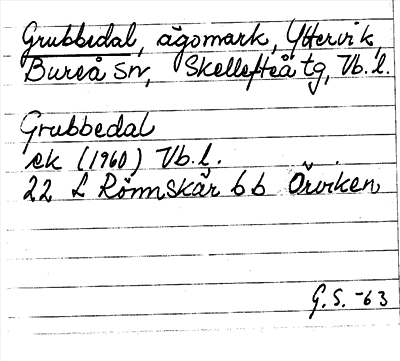 Grubbedal, ägomark, Yttervik,
Bureå sn, Skellefteå tg, Vb. l.
Grubbedal
ek (1960) Vb. l.
22 L Rönnskär b b Örviken
G. S. -63